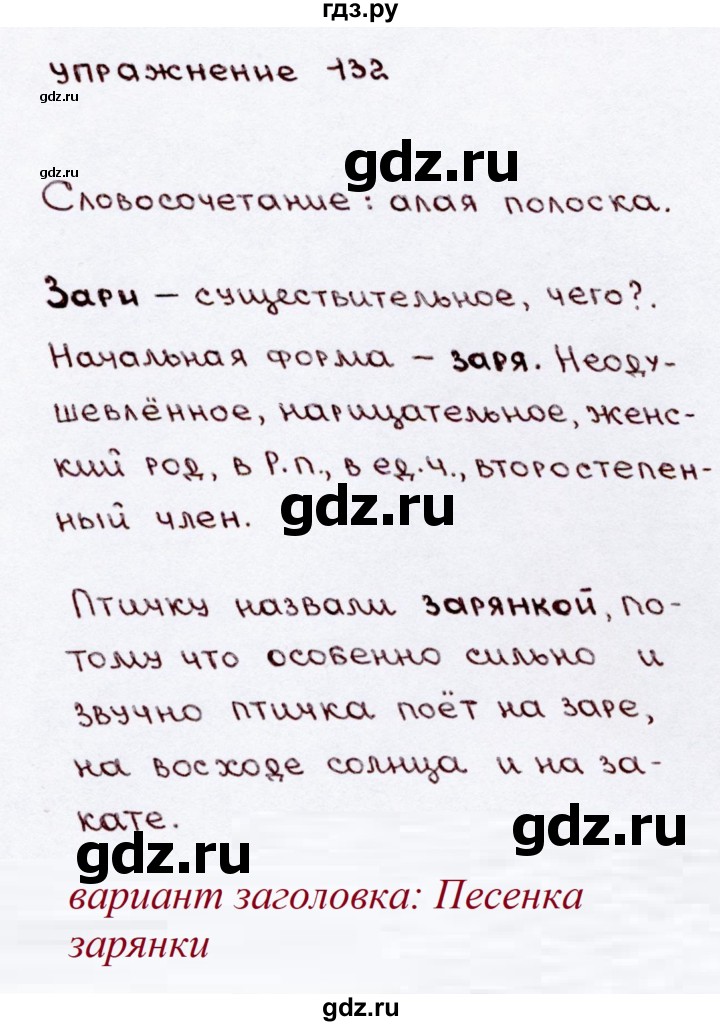 гдз.ру
упражнение 132
gdz.ru
gdz.ru
gdz.ru
Словосочетание: алая полоска.
Зари – существительное, чего?.
Начальная форма – заря. Неоду-
шевлённое, нарицательное, женс-
кий род, в Р.п., в ед.ч., второстепен-
ный член.
gdz.ru
Птичку назвали зарянкой, по-
тому что особенно сильно и
звучно птичка поёт на заре,
на восходе солнца и на за-
кате.
gdz.ru
gdz.ru
вариант заголовка: Песенка
зарянки
gdz.ru